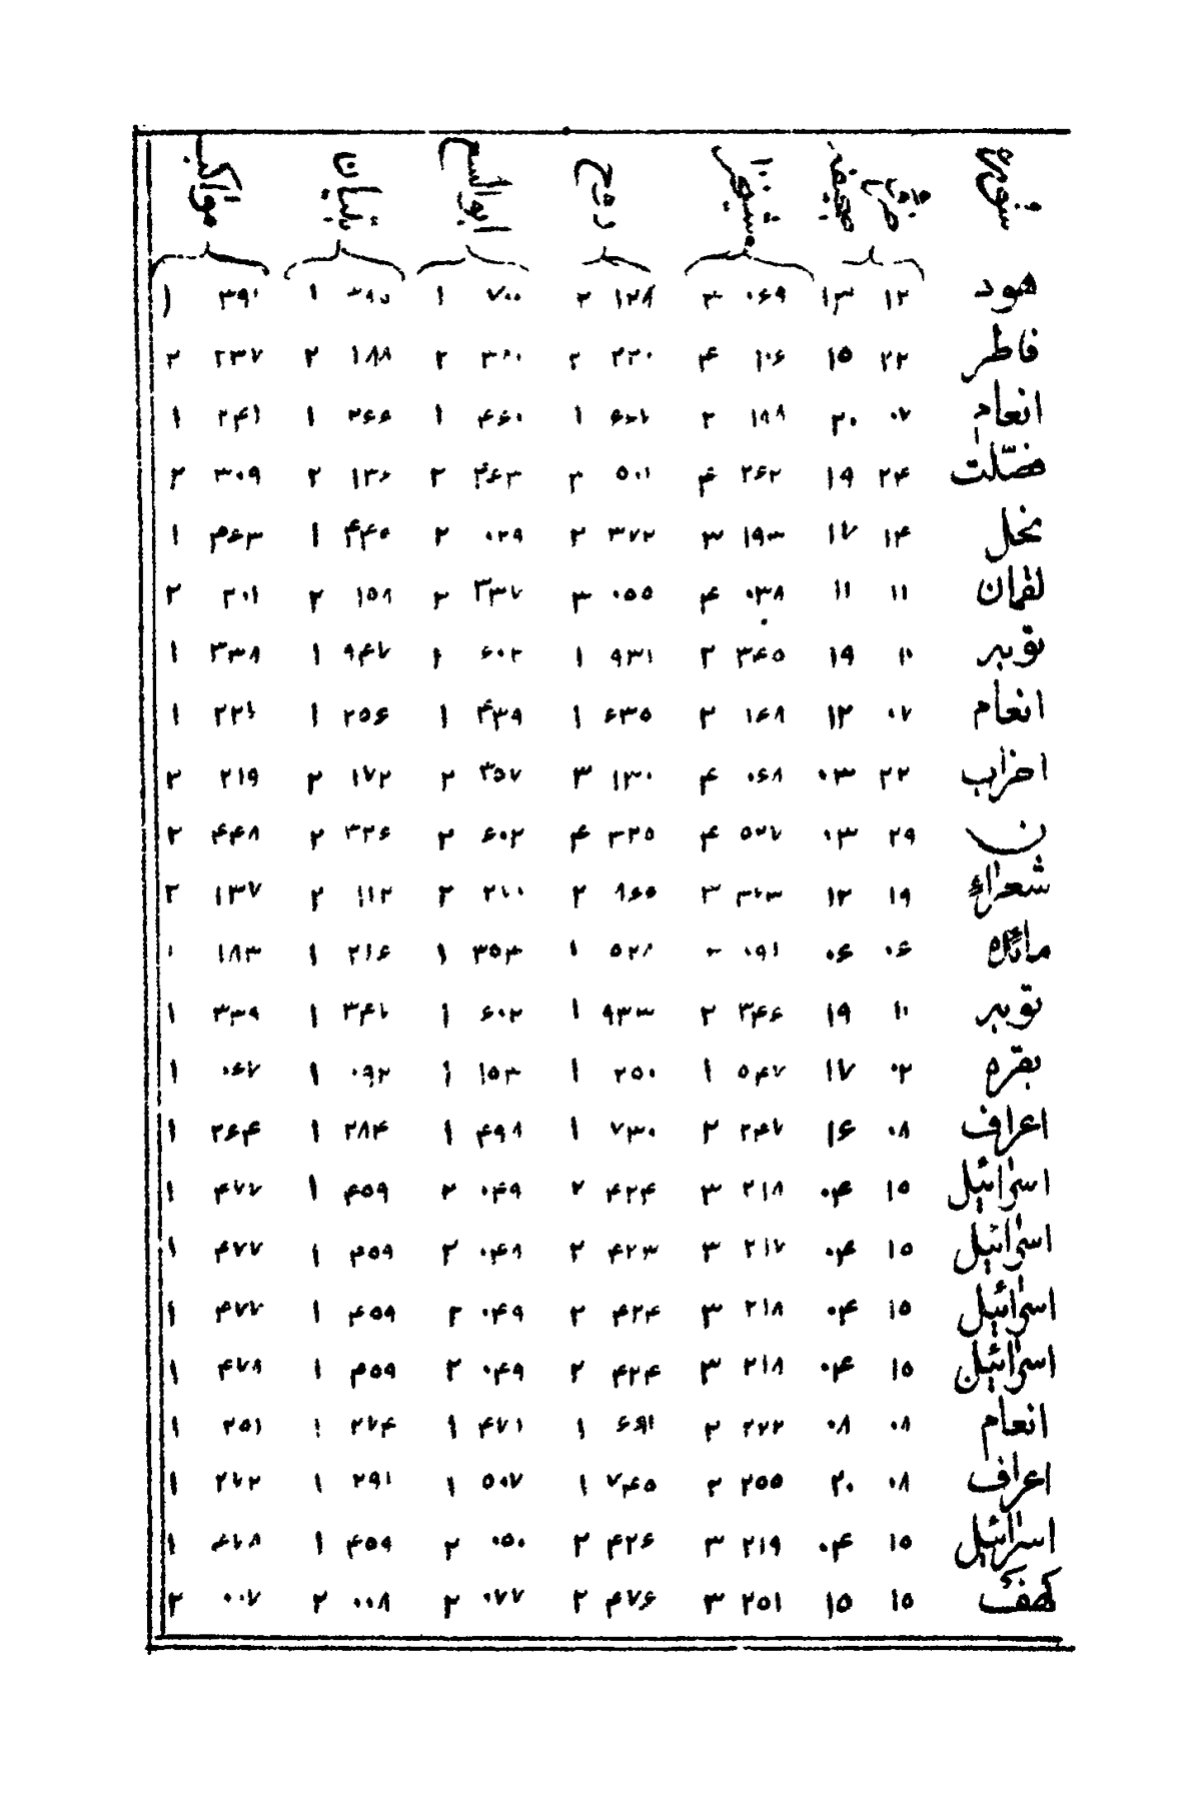 سوره جزء صحيفه شيخزاده روح ابو السعود تبيان مواكب
هود ١٢ ١٣ ٠٦٩ ٣ ١٢٨ ٢ ٧٠٠ ١ ١ ٣٩١ ١
فاطر ٢٢ ١٥ ١٠٦ ٤ ٢٢٠ ٢ ٢ ١٨٨ ٢ ٢٣٧ ٢
انعام ٠٧ ٢٠ ١٨٨ ٢ ١ ٤٦٠ ١ ٢٦٦ ١ ٢٤١ ١
فصّلت ٢٤ ١٩ ٢٦٢ ٤ ٥٠١ ٣ ٤٦٣ ٢ ١٣٦ ٢ ٣٠٩ ٢
نحل ١٤ ١٧ ١٩٣ ٣ ٣٧٢ ٢ ٠٢٩ ٢ ٤٤٥ ١ ٤٦٣ ١
لقمان ١١ ١١ ٠٣٨ ٤ ٠٥٥ ٣ ٣٣٧ ٢ ١٥٨ ٢ ٢٠١ ٢
توبه ١٠ ١٩ ٣٤٥ ٢ ٩٣١ ١ ٦٠٢ ١ ٩٤٧ ١ ٣٣٨ ١
انعام ٠٧ ١٢ ١٦٨ ٢ ٦٣٥ ١ ٤٣٩ ١ ٢٥٦ ١ ٢٢٦ ١
احزاب ٢٢ ٠٣ ٠٦٨ ٤ ١٣٠ ٣ ٣٥٧ ٢ ١٧٢ ٢ ٢١٩ ٢
ن ٢٩ ٠٣ ٥٢٧ ٤ ٣٢٥ ٤ ٦٠٢ ٢ ٣٢٦ ٢ ٤٤٨ ٢
شعراء ١٩ ١٢ ٣ ٨٦٥ ٢ ٢ ١١٢ ٢ ١٣٧ ٢
مائده ٠٦ ٠٦ ٠٩١ ٥٢٨ ١ ٣٥٣ ١ ٢١٦ ١ ١٨٣ ١
توبه ١٠ ١٩ ٣٤٦ ٢ ٩٣٣ ١ ٦٠٢ ١ ٣٤٧ ١ ٣٣٩ ١
بقره ٠٢ ١٧ ٥٤٧ ١ ٢٥٠ ١ ١٥٣ ١ ٠٩٢ ١ ٠٦٧ ١
اعراف ٠٨ ١٦ ٢٤٧ ٢ ٧٣٠ ١ ٤٩٨ ١ ٢٨٤ ١ ٢٦٤ ١
اسرائيل ١٥ ٠٤ ٢١٨ ٣ ٤٢٤ ٢ ٠٤٩ ٢ ٤٥٩ ١ ٤٧٧ ١
اسرائيل ١٥ ٠٤ ٢١٧ ٣ ٤٢٣ ٢ ٠٤٨ ٢ ٤٥٩ ١ ٤٧٧ ١
اسرائيل ١٥ ٠٤ ٢١٨ ٣ ٤٢٤ ٢ ٠٤٩ ٢ ٤٥٩ ١ ٤٧٧ ١
اسرائيل ١٥ ٠٤ ٢١٨ ٣ ٤٢٤ ٢ ٠٤٩ ٢ ٤٥٩ ١ ٤٧٨ ١
انعام ٠٨ ٠٨ ٢٢٢ ٢ ٦٩١ ١ ٤٧١ ١ ٢٧٤ ١ ٢٥١ ١
اعراف ٠٨ ٢٠ ٢٥٥ ٢ ٧٤٥ ١ ٥٠٧ ١ ٢٩١ ١ ٢٧٢ ١
اسرائيل ١٥ ٠٤ ٢١٩ ٣ ٤٢٦ ٢ ٠٥٠ ٢ ٤٥٩ ١ ٤٧٨ ١
كهف ١٥ ١٥ ٢٥١ ٣ ٤٧٦ ٢ ٠٧٧ ٢ ٠٠٨ ٢ ٠٠٧ ٢